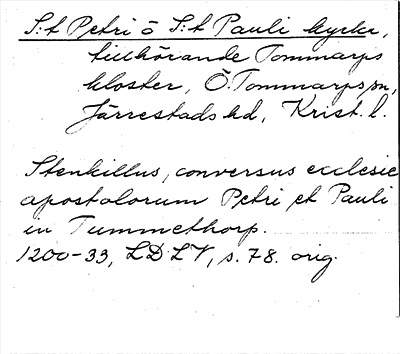 S:t Petri o S:t Pauli kyrka,
tillhörande Tommarps
kloster, Ö. Tommarps sn,
Järrestads hd, Krist. l.
Stenkillus, conversus ecclesie
apostolorum Petri et Pauli
in Tummethorp.
1200-33, LDLV, s. 78. orig.